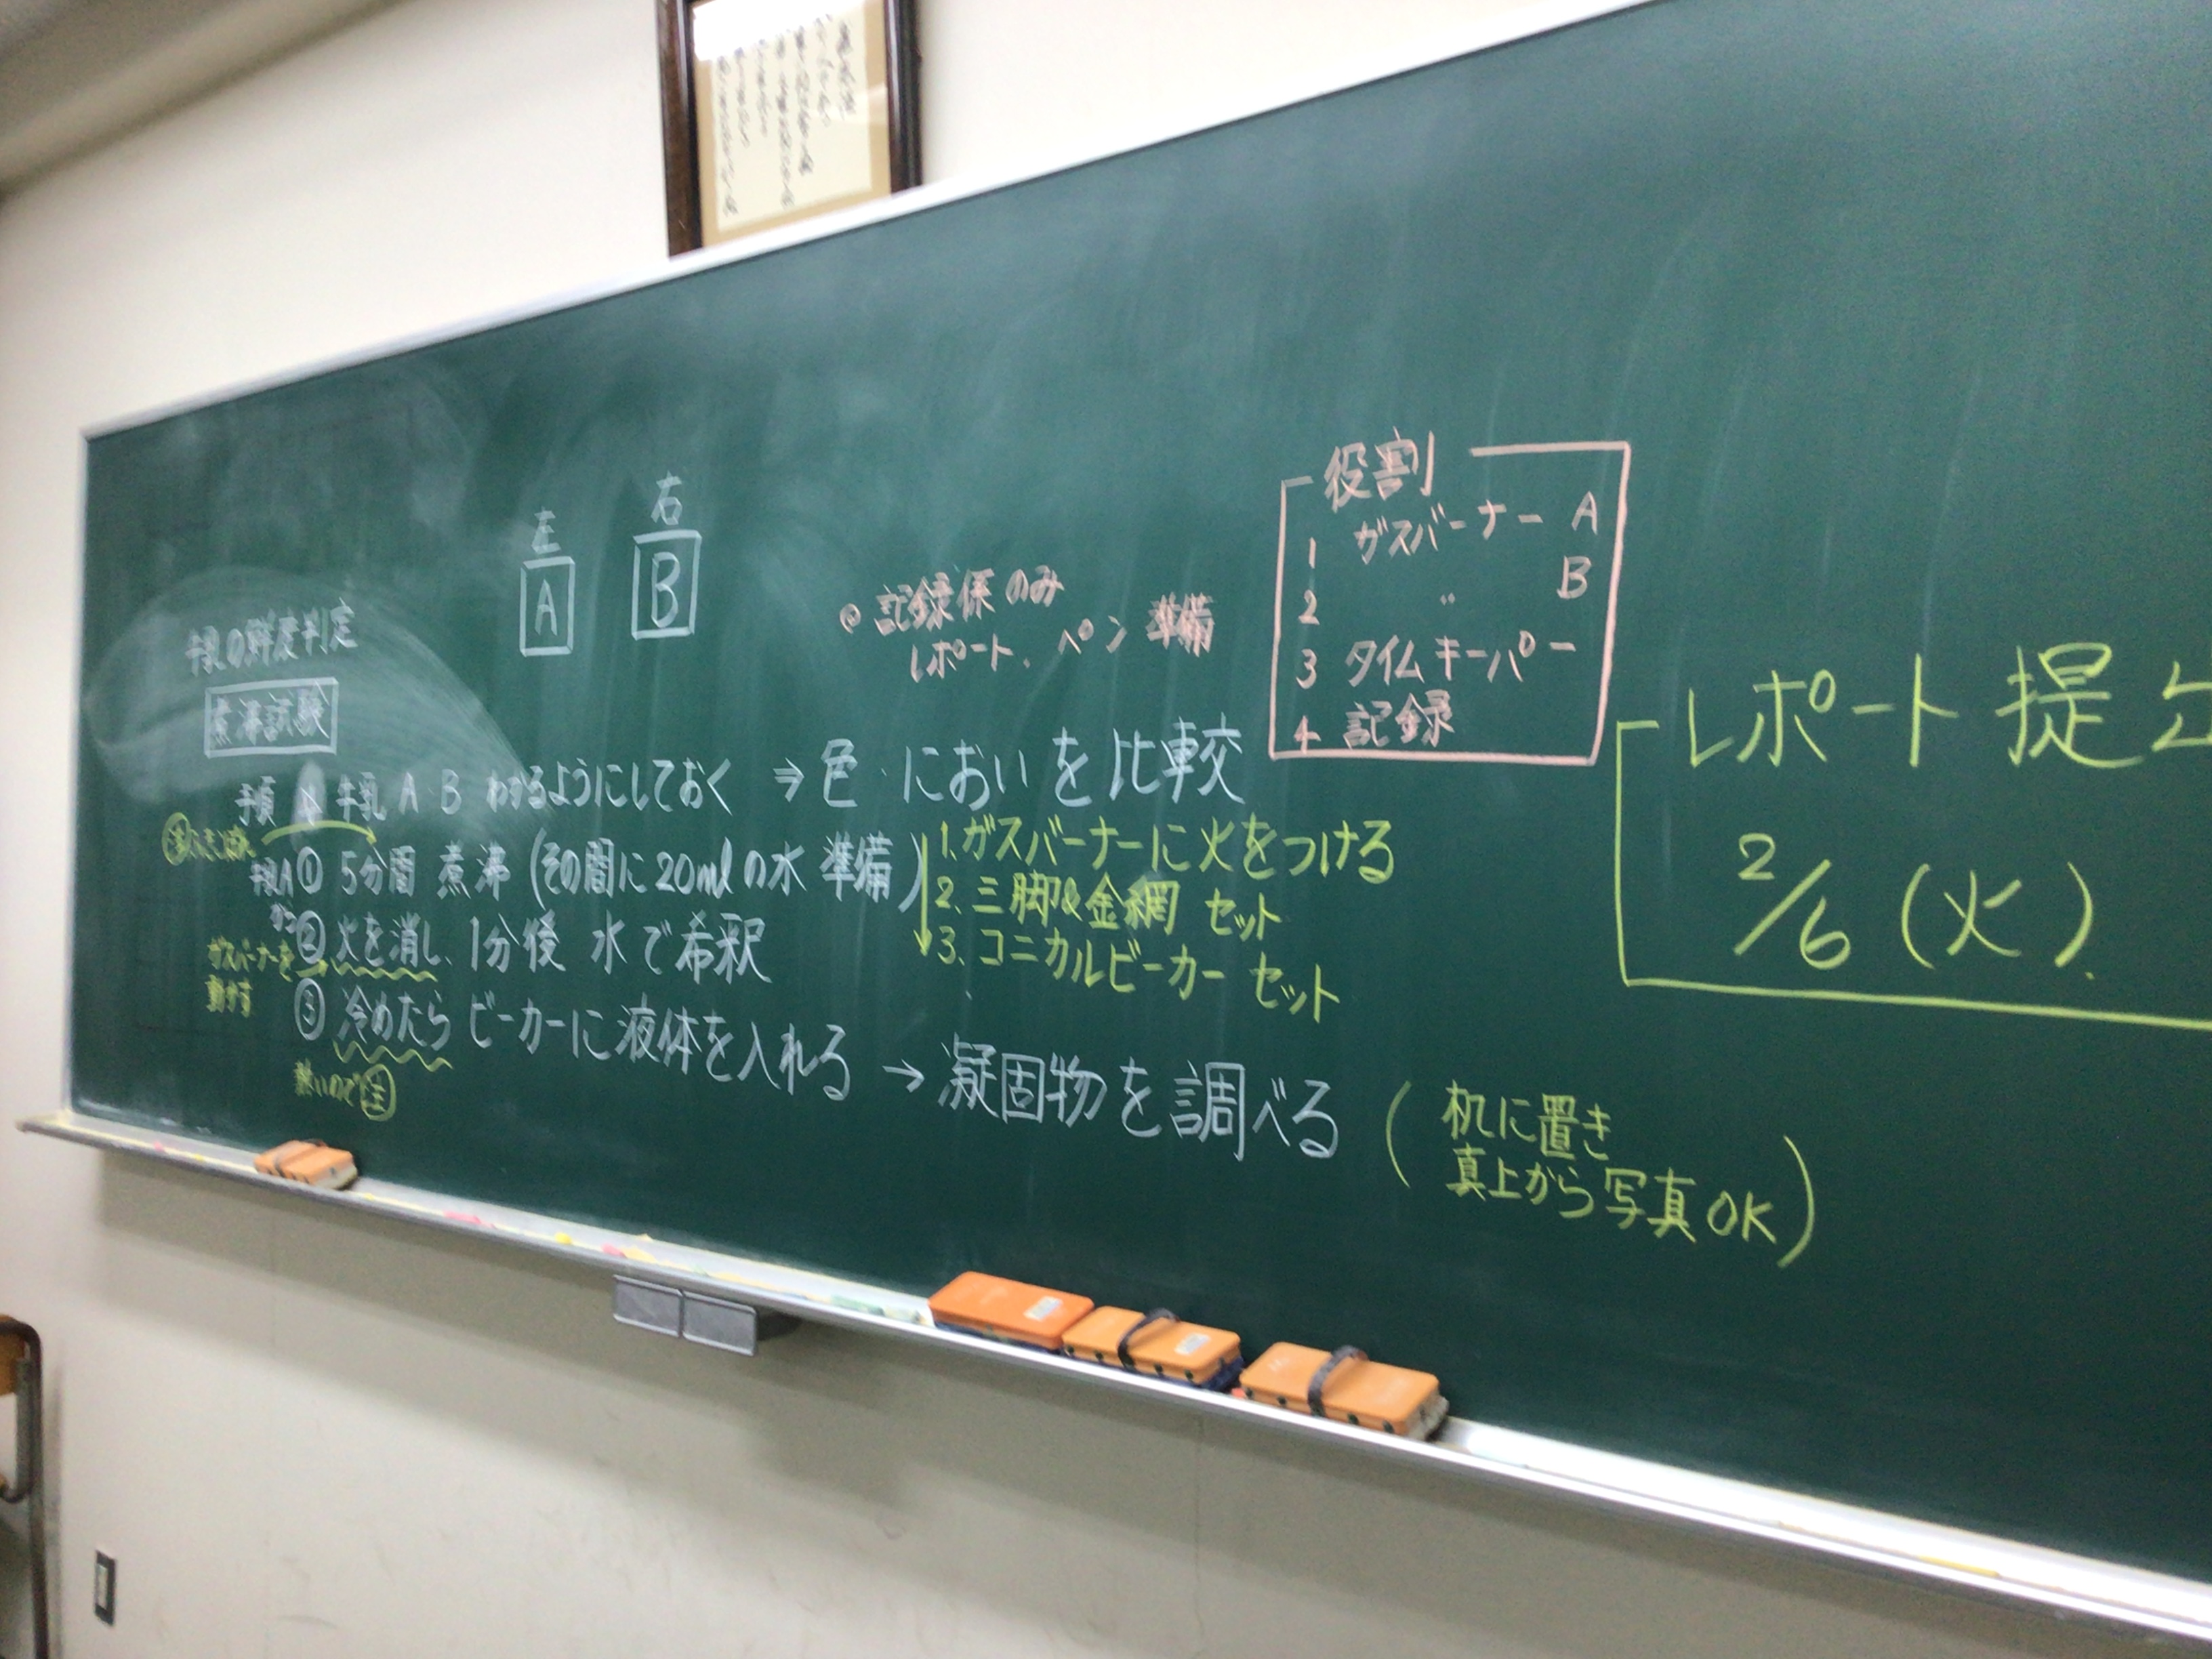 左
右
A
B
牛乳の鮮度判定
煮沸試験
手順
牛乳 A B わかるようにしておく ⇒ 色・においを比較
牛乳A ① 5分間 煮沸 (その間に20mlの水 準備)
② 火を消し、1分後 水で希釈
ガスバーナーを
動かす
③ 冷めたら ビーカーに液体を入れる → 凝固物を調べる
熱いので注
(机に置き
真上から写真OK)
1. ガスバーナーに火をつける
2. 三脚&金網 セット
3. コニカルビーカー セット
記録係のみ
レポート、ペン 準備
役割
1 ガスバーナー A
2 〃 B
3 タイムキーパー
4 記録
レポート提出
2/6 (火)